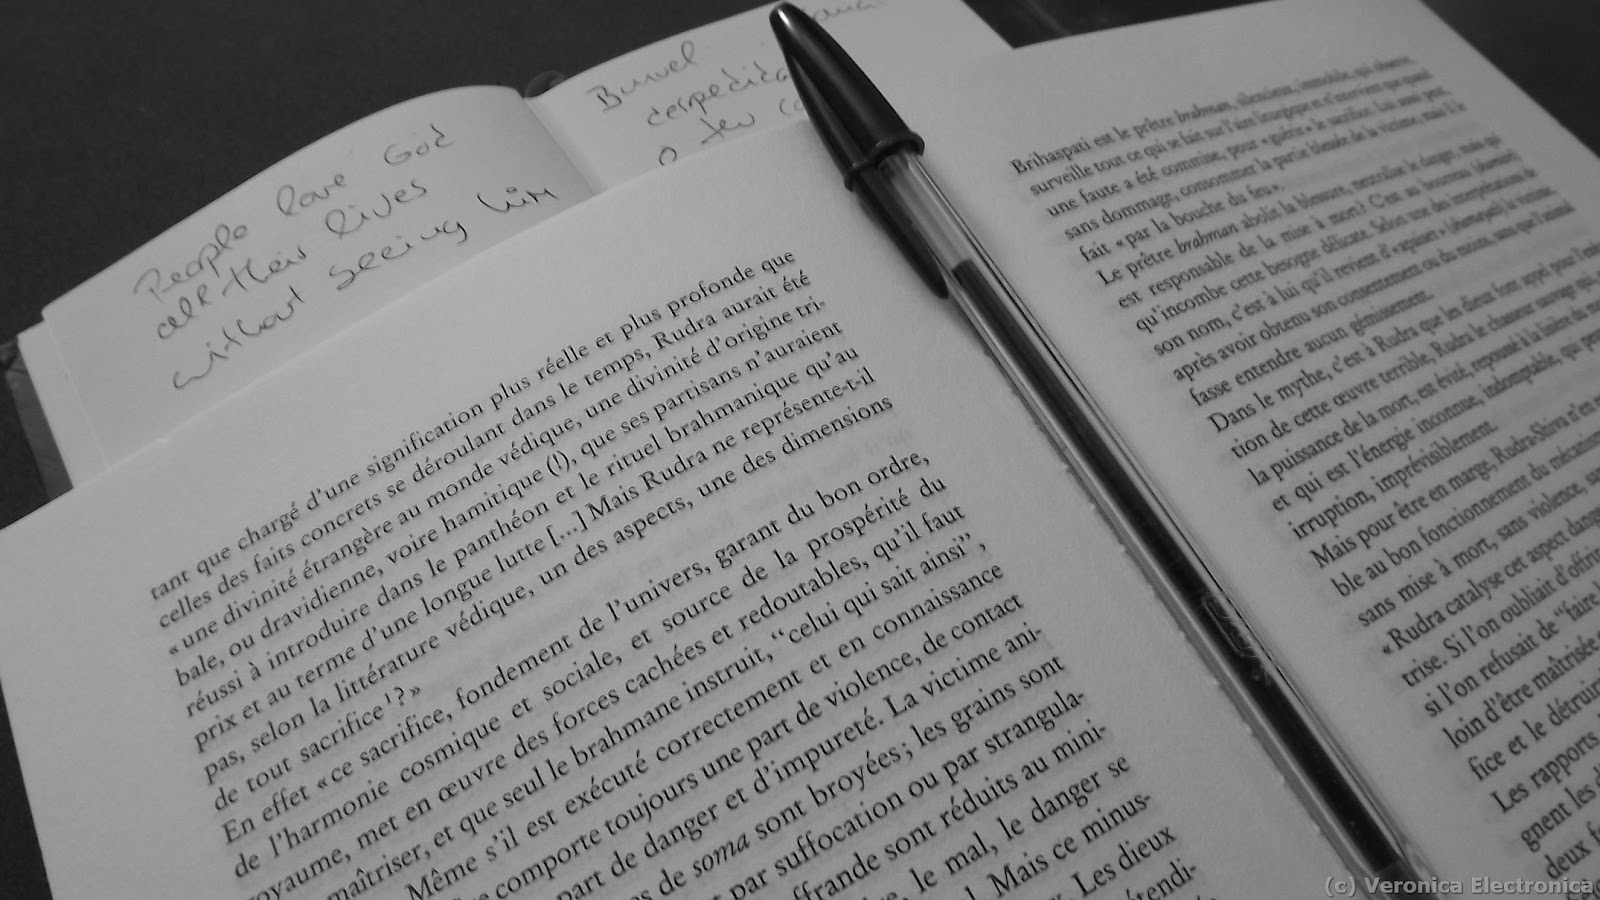 People love God
all their lives
without seeing him
Bunuel
despedida
o teu
tant que chargé d'une signification plus réelle et plus profonde que
celles des faits concrets se déroulant dans le temps, Rudra aurait été
« une divinité étrangère au monde védique, une divinité d'origine tri-
bale, ou dravidienne, voire hamitique (!), que ses partisans n'auraient
réussi à introduire dans le panthéon et le rituel brahmanique qu'au
prix et au terme d'une longue lutte [...] Mais Rudra ne représente-t-il
pas, selon la littérature védique, un des aspects, une des dimensions
de tout sacrifice¹ ? »
En effet « ce sacrifice, fondement de l'univers, garant du bon ordre,
de l'harmonie cosmique et sociale, et source de la prospérité du
royaume, met en œuvre des forces cachées et redoutables, qu'il faut
maîtriser, et que seul le brahmane instruit, “celui qui sait ainsi”,
Même s'il est exécuté correctement et en connaissance
comporte toujours une part de violence, de contact
part de danger et d'impureté. La victime ani-
es de soma sont broyées ; les grains sont
t par suffocation ou par strangula-
ffrande sont réduits au mini-
e, le mal, le danger se
l. Mais ce minus-
Les dieux
étendi-
Brihaspati est le prêtre brahman, silencieux, immobile, qui observe,
surveille tout ce qui se fait sur l'aire liturgique et n'intervient que quand
une faute a été commise, pour « guérir » le sacrifice. Lui aussi peut,
sans dommage, consommer la partie blessée de la victime, mais il le
fait « par la bouche du feu ».
Le prêtre brahman abolit la blessure, neutralise le danger, mais qui
est responsable de la mise à mort ? C'est au bourreau (shamitar)
qu'incombe cette besogne délicate. Selon une des interprétations de
son nom, c'est à lui qu'il revient d'« apaiser » (shamayati) la victime
après avoir obtenu son consentement ou du moins, sans que l'animal
fasse entendre aucun gémissement.
Dans le mythe, c'est à Rudra que les dieux font appel pour l'exécu-
tion de cette œuvre terrible, Rudra le chasseur sauvage qui,
la puissance de la mort, est évité, repoussé à la lisière du
et qui est l'énergie inconnue, indomptable, qui
irruption, imprévisiblement.
Mais pour être en marge, Rudra-Shiva n'en
ble au bon fonctionnement du mécanisme
sans mise à mort, sans violence,
« Rudra catalyse cet aspect
trise. Si l'on oubliait d'offrir
si l'on refusait de “faire
loin d'être maîtrisée
fice et le détruire
Les rapports
gnent les
deux
(c) Veronica Electronica